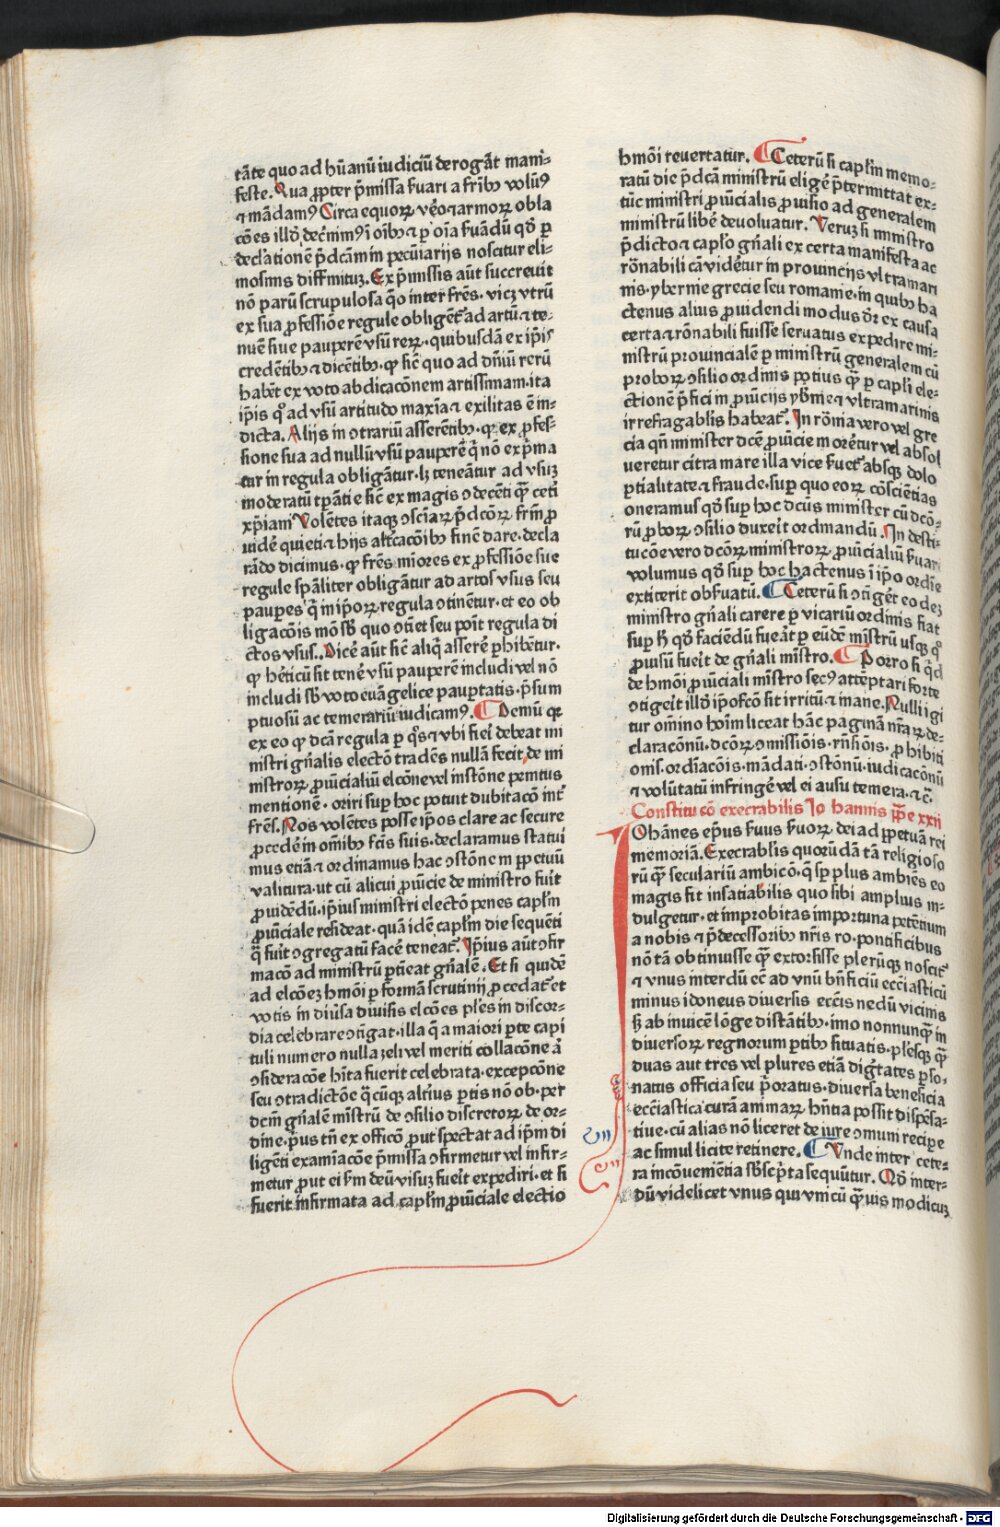 tāte quo ad hūanū iudiciū derogāt mani-
feste. Qua ꝓpter p̄missa ẜuari a frībꝰ volūꝰ
⁊ mādamꝰ Circa equoꝝ v̓o ⁊ armoꝝ obla
cōes illđ dec̓nimꝰ ī oībꝰ ⁊ ꝑ oīa ẜuādū qđ ꝑ
declatōnē p̄dcām in pecūiarijs noscitur eli-
mosinis diffinitū. Ex p̄missis aūt succreuit
nō parū scrupulosa q̄o inter frēs. vicꝫ vtrū
ex sua ꝓfessiōe regule obligēt̉ ad artū ⁊ te-
nuē siue pauperē vsū reꝝ. quibusdā ex ip̄is
credētibꝰ ⁊ dicētibꝰ. ꝙ sic̄ quo ad dn̄iū rerū
habēt ex voto abdicacōnem artissimam. ita
ip̄is qđ ad vsū artitudo maxīa ⁊ exilitas ē in-
dicta. Alijs in ꝯtrariū asserētibꝰ. ꝙ ex ꝓfes-
sione sua ad nullū vsū pauperē q̄ nō exp̄ma
tur in regula obligātur. lꝫ teneātur ad vsuꝫ
moderatū tꝑātie sic̄ ex magis ꝯdecēti q̄ȝ ceti
xp̄iani Volētes itaqꝫ ꝯsciāꝝ p̄dcōꝝ frm̄ ꝓ
uidē quieti ⁊ hijs alt̓cacōibꝰ finē dare. decla
rādo dicimus. ꝙ frēs mīores ex ꝓfessiōe sue
regule spāliter obligātur ad artos vsus seu
pauꝑes q̄ in ip̄oꝝ regula ꝯtinētur. et eo ob
ligacōis mō sb̄ quo ꝯtīet seu poīt regula di
ctos vsus. Dicē aūt sic̄ aliq̄ asserē ꝑhibētur.
ꝙ hēticū sit tenē vsū pauperē includi vel nō
includi sb̄ voto euāgelice pauꝑtatis. p̄sum
ptuosū ac temerariū iudicamꝰ. Demū qꝛ
ex eo ꝙ dcā regula ꝑ q̄s ⁊ vbi fieī debeat mi
nistri gn̄alis electō tradēs nullā fecit de mi
nistroꝝ ꝓuīcialiū elcōne vel instōne penitus
mentionē. oriri suꝑ hoc potuit dubitacō int̓
frēs. Nos volētes posse ip̄os clare ac secure
ꝓcedē in oīmibꝰ fc̄is suis. declaramus statui
mus etiā ⁊ ordinamus hac ꝯstōne in ꝑpetuū
valitura. vt cū alicui ꝓuīcie de ministro fuīt
ꝓuidēdū. ip̄ius ministri electō penes capl̄m
ꝓuīciale resideat. quā idē capl̄m die sequēti
q̄ fuīt ꝯgregatū facē teneat̉. Ip̄ius aūt ꝯfir
macō ad ministrū ꝑtīeat gn̄alē. Et si quidē
ad elcōeꝫ hmōi ꝑ formā scrutinij ꝓcedat̉ et
votis in diūsa diuisis elcōes pl̄es in discor-
dia celebrare ꝯtīgat. illa q̄ a maiori ꝑte capi
tuli numero nulla zeli vel meriti collacōne aī
ꝯsideracōe hīta fuerit celebrata. excepcōne
seu ꝯtradictōe q̄cūqꝫ alt̓ius ꝑtis nō ob. per
dcm̄ gn̄alem mīstrū de ꝯsilio discretoꝝ de or-
dine. p̄us tn̄ ex officō ꝓut spectat ad ip̄m di
ligēti examīacōe p̄missa ꝯfirmetur vel infir-
metur ꝓut ei ẜm deū visuꝫ fueīt expediri. et si
fuerit infirmata ad capl̄m ꝓuīciale electio
hmōi reuertatur. Ceterū si capl̄m memo-
ratū die p̄dcā ministrū eligē p̄termittat ex-
tūc ministri ꝓuīcialis ꝓuisio ad generalem
ministrū libē deuoluatur. Veruꝫ si ministro
p̄dicto ⁊ caplō gn̄ali ex certa manifesta ac
rōnabili cā vidēt̉ in prouincijs vltramari
nis. ybernie grecie seu romanie. in quibꝰ ha
ctenus alius ꝓuidendi modus dr̄ ex causa
certa ⁊ rōnabili fuisse seruatus expedire mi-
nistrū prouincialē ꝑ ministrū generalem cū
proboꝝ ꝯsilio ordinis potius q̄ȝ ꝑ capl̄i ele-
ctionē p̄fici in ꝓuīcijs yb̄nie ⁊ vltramarinis
irrefragabl̓is habeat̉. In rōmia vero vel gre
cia qn̄ minister dcē ꝓuīcie morēt̉ vel absol
ueretur citra mare illa vice ẜuet̉ absqꝫ dolo
ꝑtialitate ⁊ fraude. suꝑ quo eoꝝ cōsciētias
oneramus qđ suꝑ hoc dcūs minister cū dcō-
rū ꝓboꝝ ꝯsilio duxeīt ordinandū. In desti-
tucōe vero dcōꝝ ministroꝝ ꝓuīcialiū ẜuari
volumus qđ suꝑ hoc hactenus ī ip̄o ordīe
extiterit obẜuatū. Ceterū si ꝯtīgēt eodeꝫ
ministro gn̄ali carere ꝑ vicariū ordinis fiat
suꝑ ħ qđ faciēdū fueīt ꝑ eūdē mīstrū usqꝫ q̊
ꝓuisū fueīt de gn̄ali mīstro. Porro si q̄d
de hmōi ꝓuīciali mīstro secꝰ attēptari forte
ꝯtigeīt illđ ip̄o fcō sit irritū ⁊ inane. Nulli igi
tur om̄ino hoīm liceat hāc paginā nr̄aꝝ de-
claracōnū. dcōꝝ ꝯmissiōis. rn̄siōis. ꝓhibiti
onis. ordīacōis. mādati. ꝯstōnū. iudicacōnū
⁊ volūtatū infringē vel ei ausu temera. ⁊ c̄.
Constitucō execrabilis Johannis pp̄e xxij
IOhānes ep̄us ẜuus ẜuoꝝ dei ad ꝑpetuā rei
memoriā. Execrabl̓is quorūdā tā religioso
rū q̄ȝ seculariū ambicō. q̄ sꝑ plus ambiēs eo
magis fit insatiabilis quo sibi amplius in-
dulgetur. et improbitas importuna petētium
a nobis ⁊ p̄decessoribꝰ nr̄is ro. pontificibus
nō tā obtinuisse q̄ȝ extorsisse plerūqꝫ noscit̉
⁊ vnus interdū ec̄ ad vnū bn̄ficiū ecc̄iasticū
minus idoneus diuersis ecc̄is nedū vicinis
sꝫ ab inuicē lōge distātibꝰ. imo nonnunq̄ȝ in
diuersoꝝ regnorum ꝑtibꝰ situatis. pl̄esqꝫ q̄ȝ
duas aut tres vel plures etiā dig̓tates ꝑso-
natus officia seu p̄oratus. diuersa beneficia
ecc̄iastica curā animaꝝ hn̄tia possit dispēsa-
tiue. cū alias nō liceret de iure ꝯmuni recipe
ac simul licite retinere. Vnde inter cete-
ra incōuenientia sb̄scp̄ta sequūtur. Qđ inter-
dū videlicet vnus qui vnicū q̄ȝuis modicuꝫ
Digitalisierung gefördert durch die Deutsche Forschungsgemeinschaft - DFG